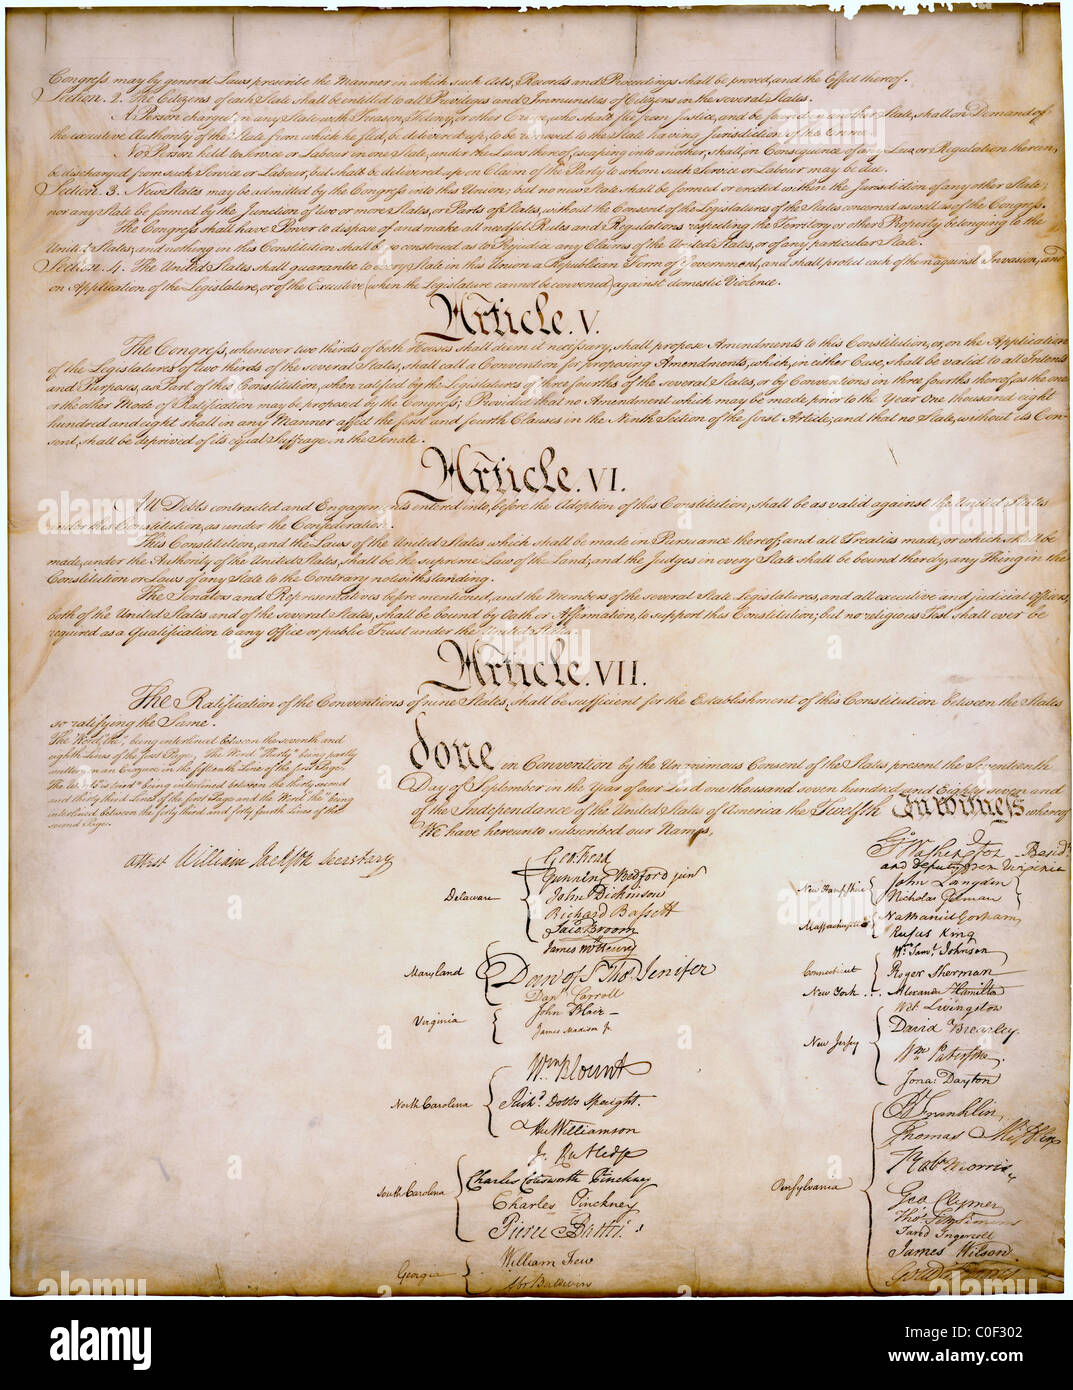 Congress may by general Laws prescribe the Manner in which such Acts, Records and Proceedings shall be proved, and the Effect thereof.
Section. 2. The Citizens of each State shall be entitled to all Privileges and Immunities of Citizens in the several States.
A Person charged in any State with Treason, Felony, or other Crime, who shall flee from Justice, and be found in another State, shall on Demand of
the executive Authority of the State from which he fled, be delivered up, to be removed to the State having Jurisdiction of the Crime.
No Person held to Service or Labour in one State, under the Laws thereof, escaping into another, shall, in Consequence of any Law or Regulation therein,
be discharged from such Service or Labour, but shall be delivered up on Claim of the Party to whom such Service or Labour may be due.
Section. 3. New States may be admitted by the Congress into this Union; but no new State shall be formed or erected within the Jurisdiction of any other State;
nor any State be formed by the Junction of two or more States, or Parts of States, without the Consent of the Legislatures of the States concerned as well as of the Congress.
The Congress shall have Power to dispose of and make all needful Rules and Regulations respecting the Territory or other Property belonging to the
United States; and nothing in this Constitution shall be so construed as to Prejudice any Claims of the United States, or of any particular State.
Section. 4. The United States shall guarantee to every State in this Union a Republican Form of Government, and shall protect each of them against Invasion; and
on Application of the Legislature, or of the Executive (when the Legislature cannot be convened) against domestic Violence.
Article. V.
The Congress, whenever two thirds of both Houses shall deem it necessary, shall propose Amendments to this Constitution, or, on the Application
of the Legislatures of two thirds of the several States, shall call a Convention for proposing Amendments, which, in either Case, shall be valid to all Intents
and Purposes, as Part of this Constitution, when ratified by the Legislatures of three fourths of the several States, or by Conventions in three fourths thereof, as the one
or the other Mode of Ratification may be proposed by the Congress; Provided that no Amendment which may be made prior to the Year One thousand eight
hundred and eight shall in any Manner affect the first and fourth Clauses in the Ninth Section of the first Article; and that no State, without its Con-
sent, shall be deprived of its equal Suffrage in the Senate.
Article. VI.
All Debts contracted and Engagements entered into, before the Adoption of this Constitution, shall be as valid against the United States
under this Constitution, as under the Confederation.
This Constitution, and the Laws of the United States which shall be made in Pursuance thereof; and all Treaties made, or which shall be
made, under the Authority of the United States, shall be the supreme Law of the Land; and the Judges in every State shall be bound thereby, any Thing in the
Constitution or Laws of any State to the Contrary notwithstanding.
The Senators and Representatives before mentioned, and the Members of the several State Legislatures, and all executive and judicial Officers,
both of the United States and of the several States, shall be bound by Oath or Affirmation, to support this Constitution; but no religious Test shall ever be
required as a Qualification to any Office or public Trust under the United States.
Article. VII.
The Ratification of the Conventions of nine States, shall be sufficient for the Establishment of this Constitution between the States
so ratifying the Same.
The Word "the", being interlined between the seventh and
eighth Lines of the first Page, The Word "Thirty" being partly
written on an Erazure in the fifteenth Line of the first Page.
The Words "is tried" being interlined between the thirty second
and thirty third Lines of the first Page and the Word "the" being
interlined between the forty third and forty fourth Lines of the
second Page.
attest William Jackson Secretary
done in Convention by the Unanimous Consent of the States present the Seventeenth
Day of September in the Year of our Lord one thousand seven hundred and Eighty seven and
of the Independance of the United States of America the Twelfth In Witness whereof
We have hereunto subscribed our Names,
Go. Washington Presidt
and deputy from Virginia
Delaware
Geo: Read
Gunning Bedford jun
John Dickinson
Richard Bassett
Jaco: Broom
Maryland
James McHenry
Dan of St Thos. Jenifer
Danl Carroll
Virginia
John Blair
James Madison Jr.
North Carolina
Wm Blount
Richd. Dobbs Spaight.
Hu Williamson
South Carolina
J. Rutledge
Charles Cotesworth Pinckney
Charles Pinckney
Pierce Butler.
Georgia
William Few
Abr Baldwin
New Hampshire
John Langdon
Nicholas Gilman
Massachusetts
Nathaniel Gorham
Rufus King
Connecticut
Wm. Saml. Johnson
Roger Sherman
New York . . .
Alexander Hamilton
New Jersey
Wil: Livingston
David Brearley.
Wm Paterson.
Jona: Dayton
Pensylvania
B Franklin
Thomas Mifflin
Robt Morris
Geo. Clymer
Thos. FitzSimons
Jared Ingersoll
James Wilson.
Gouv Morris
alamy
Image ID: C0F302
www.alamy.com